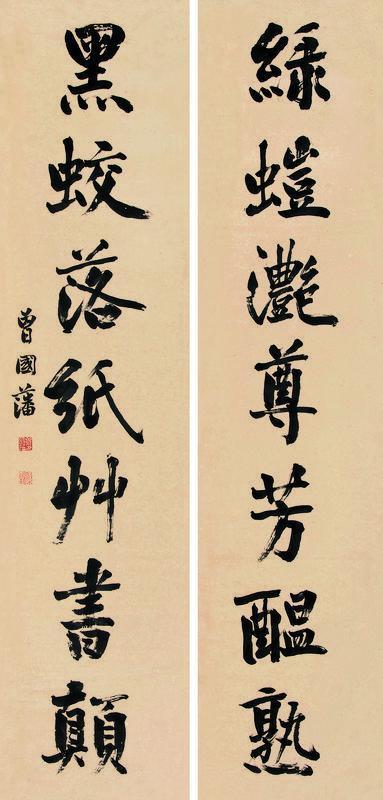 綠螘灔尊芳醞熟
黑蛟落紙艸書顛
曾國藩